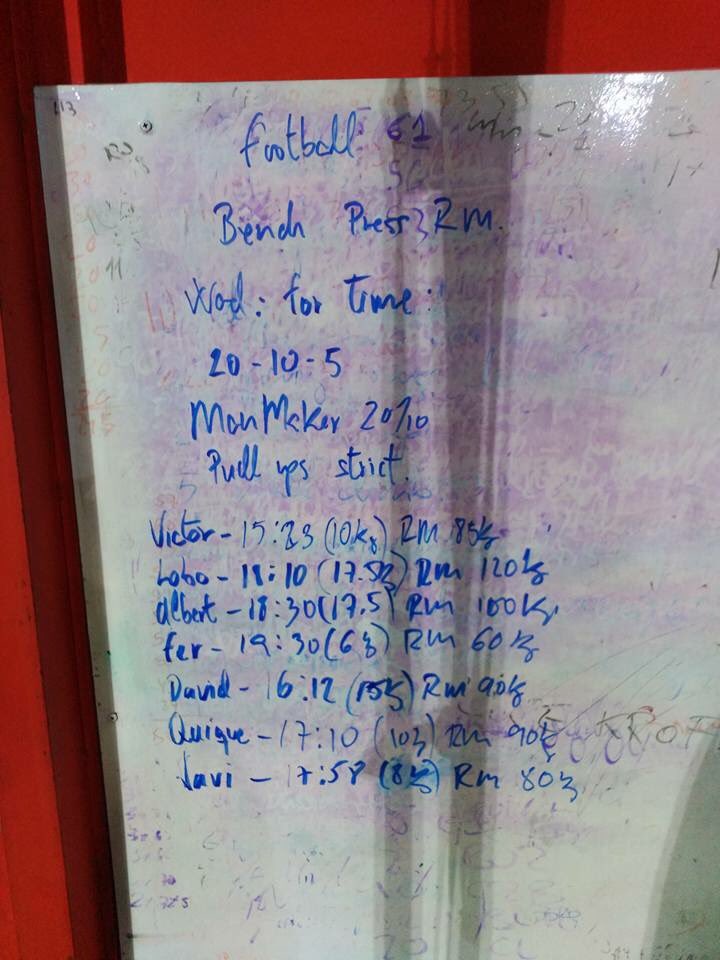 Football 61
Bench Press 3 RM.
Wod: for time:
20-10-5
ManMaker 20/10
Pull ups strict.
Victor - 15:23 (10kg) RM 85kg
Lobo - 18:10 (17.5kg) RM 120kg
Albert - 18:30 (17,5) RM 100Kg
fer - 19:30 (6kg) RM 60kg
David - 16:12 (15kg) Rm 90kg
Quique - 17:10 (10kg) RM 90kg
Javi - 17:58 (8kg) Rm 80kg